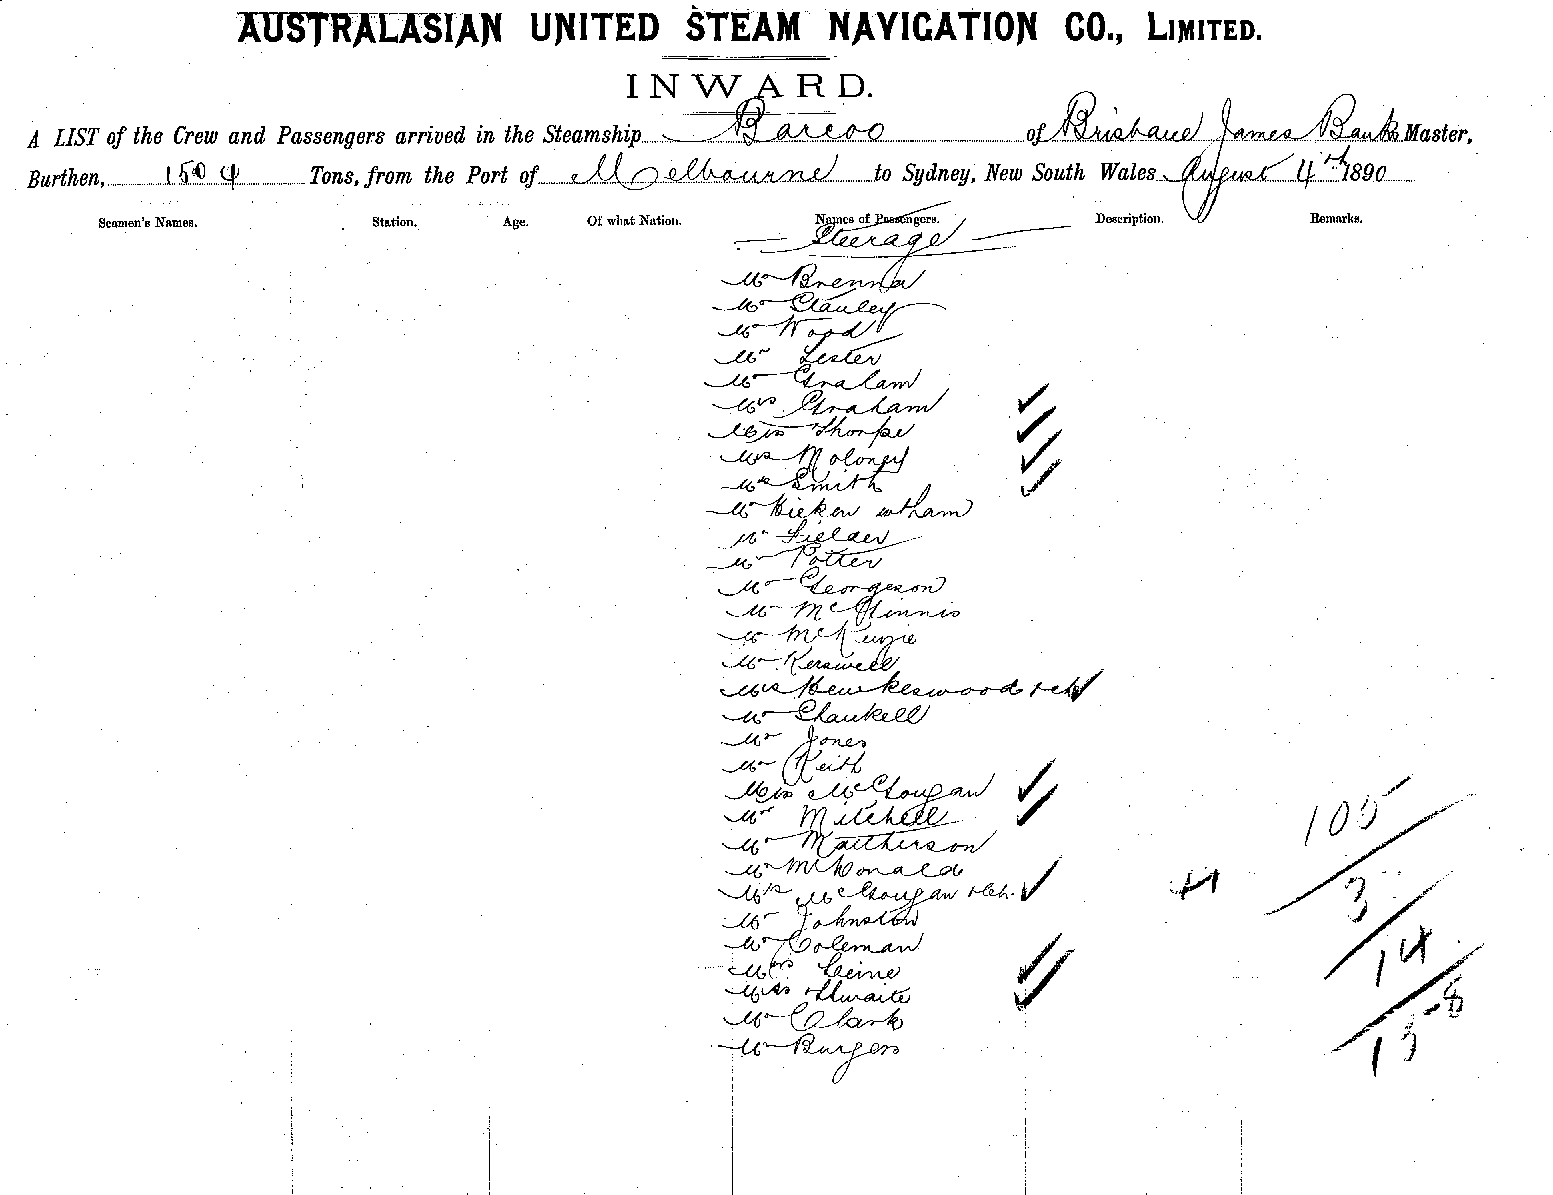 AUSTRALASIAN UNITED STEAM NAVIGATION CO., LIMITED.
INWARD.
A LIST of the Crew and Passengers arrived in the Steamship Barcoo of Brisbane James Banks Master,
Burthen, 1504 Tons, from the Port of Melbourne to Sydney, New South Wales August 4th 1890
Seamen's Names. Station. Age. Of what Nation. Names of Passengers. Description. Remarks.
Steerage
Mr Brennan
Mr Stanley
Mr Wood
Mr Lester
Mr Graham
Mrs Graham ✓
Miss Thorpe ✓
Mrs Moloney ✓
Mrs Smith ✓
Mr
Mr Fielder
Mr Potter
Mr Georgeson
Mr McGinnis
Mr McKenzie
Mr Kerswell
Mrs Hewkeswood + ch ✓
Mr Shankell
Mr Jones
Mr Keith
Miss McGougan ✓
Mitchell ✓
Mr Matherson
Mr McDonald
Mrs McGougan + ch. ✓
Mr Johnston
Mr Coleman
Mrs Leine ✓
Mrs Thwaite ✓
Mr Clark
Mr Burgess
105
3
14